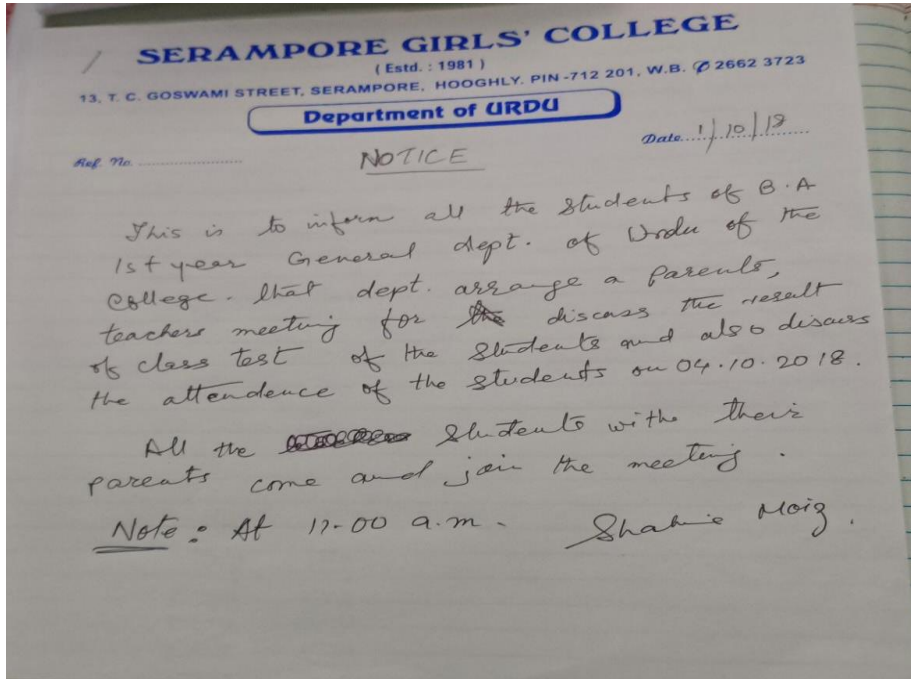 SERAMPORE GIRLS' COLLEGE
( Estd. : 1981 )
13, T. C. GOSWAMI STREET, SERAMPORE, HOOGHLY. PIN-712 201, W.B. ✆ 2662 3723
Department of URDU
Ref. No. ........................ Date....1/10/18..........
NOTICE
This is to inform all the Students of B.A
1st year General dept. of Urdu of the
College. that dept. arrange a Parents,
teachers meeting for discuss the result
of class test of the Students and also discuss
the attendence of the students on 04.10.2018.
All the Students withe their
parents come and join the meeting.
Note : At 11-00 a.m. Moiz.